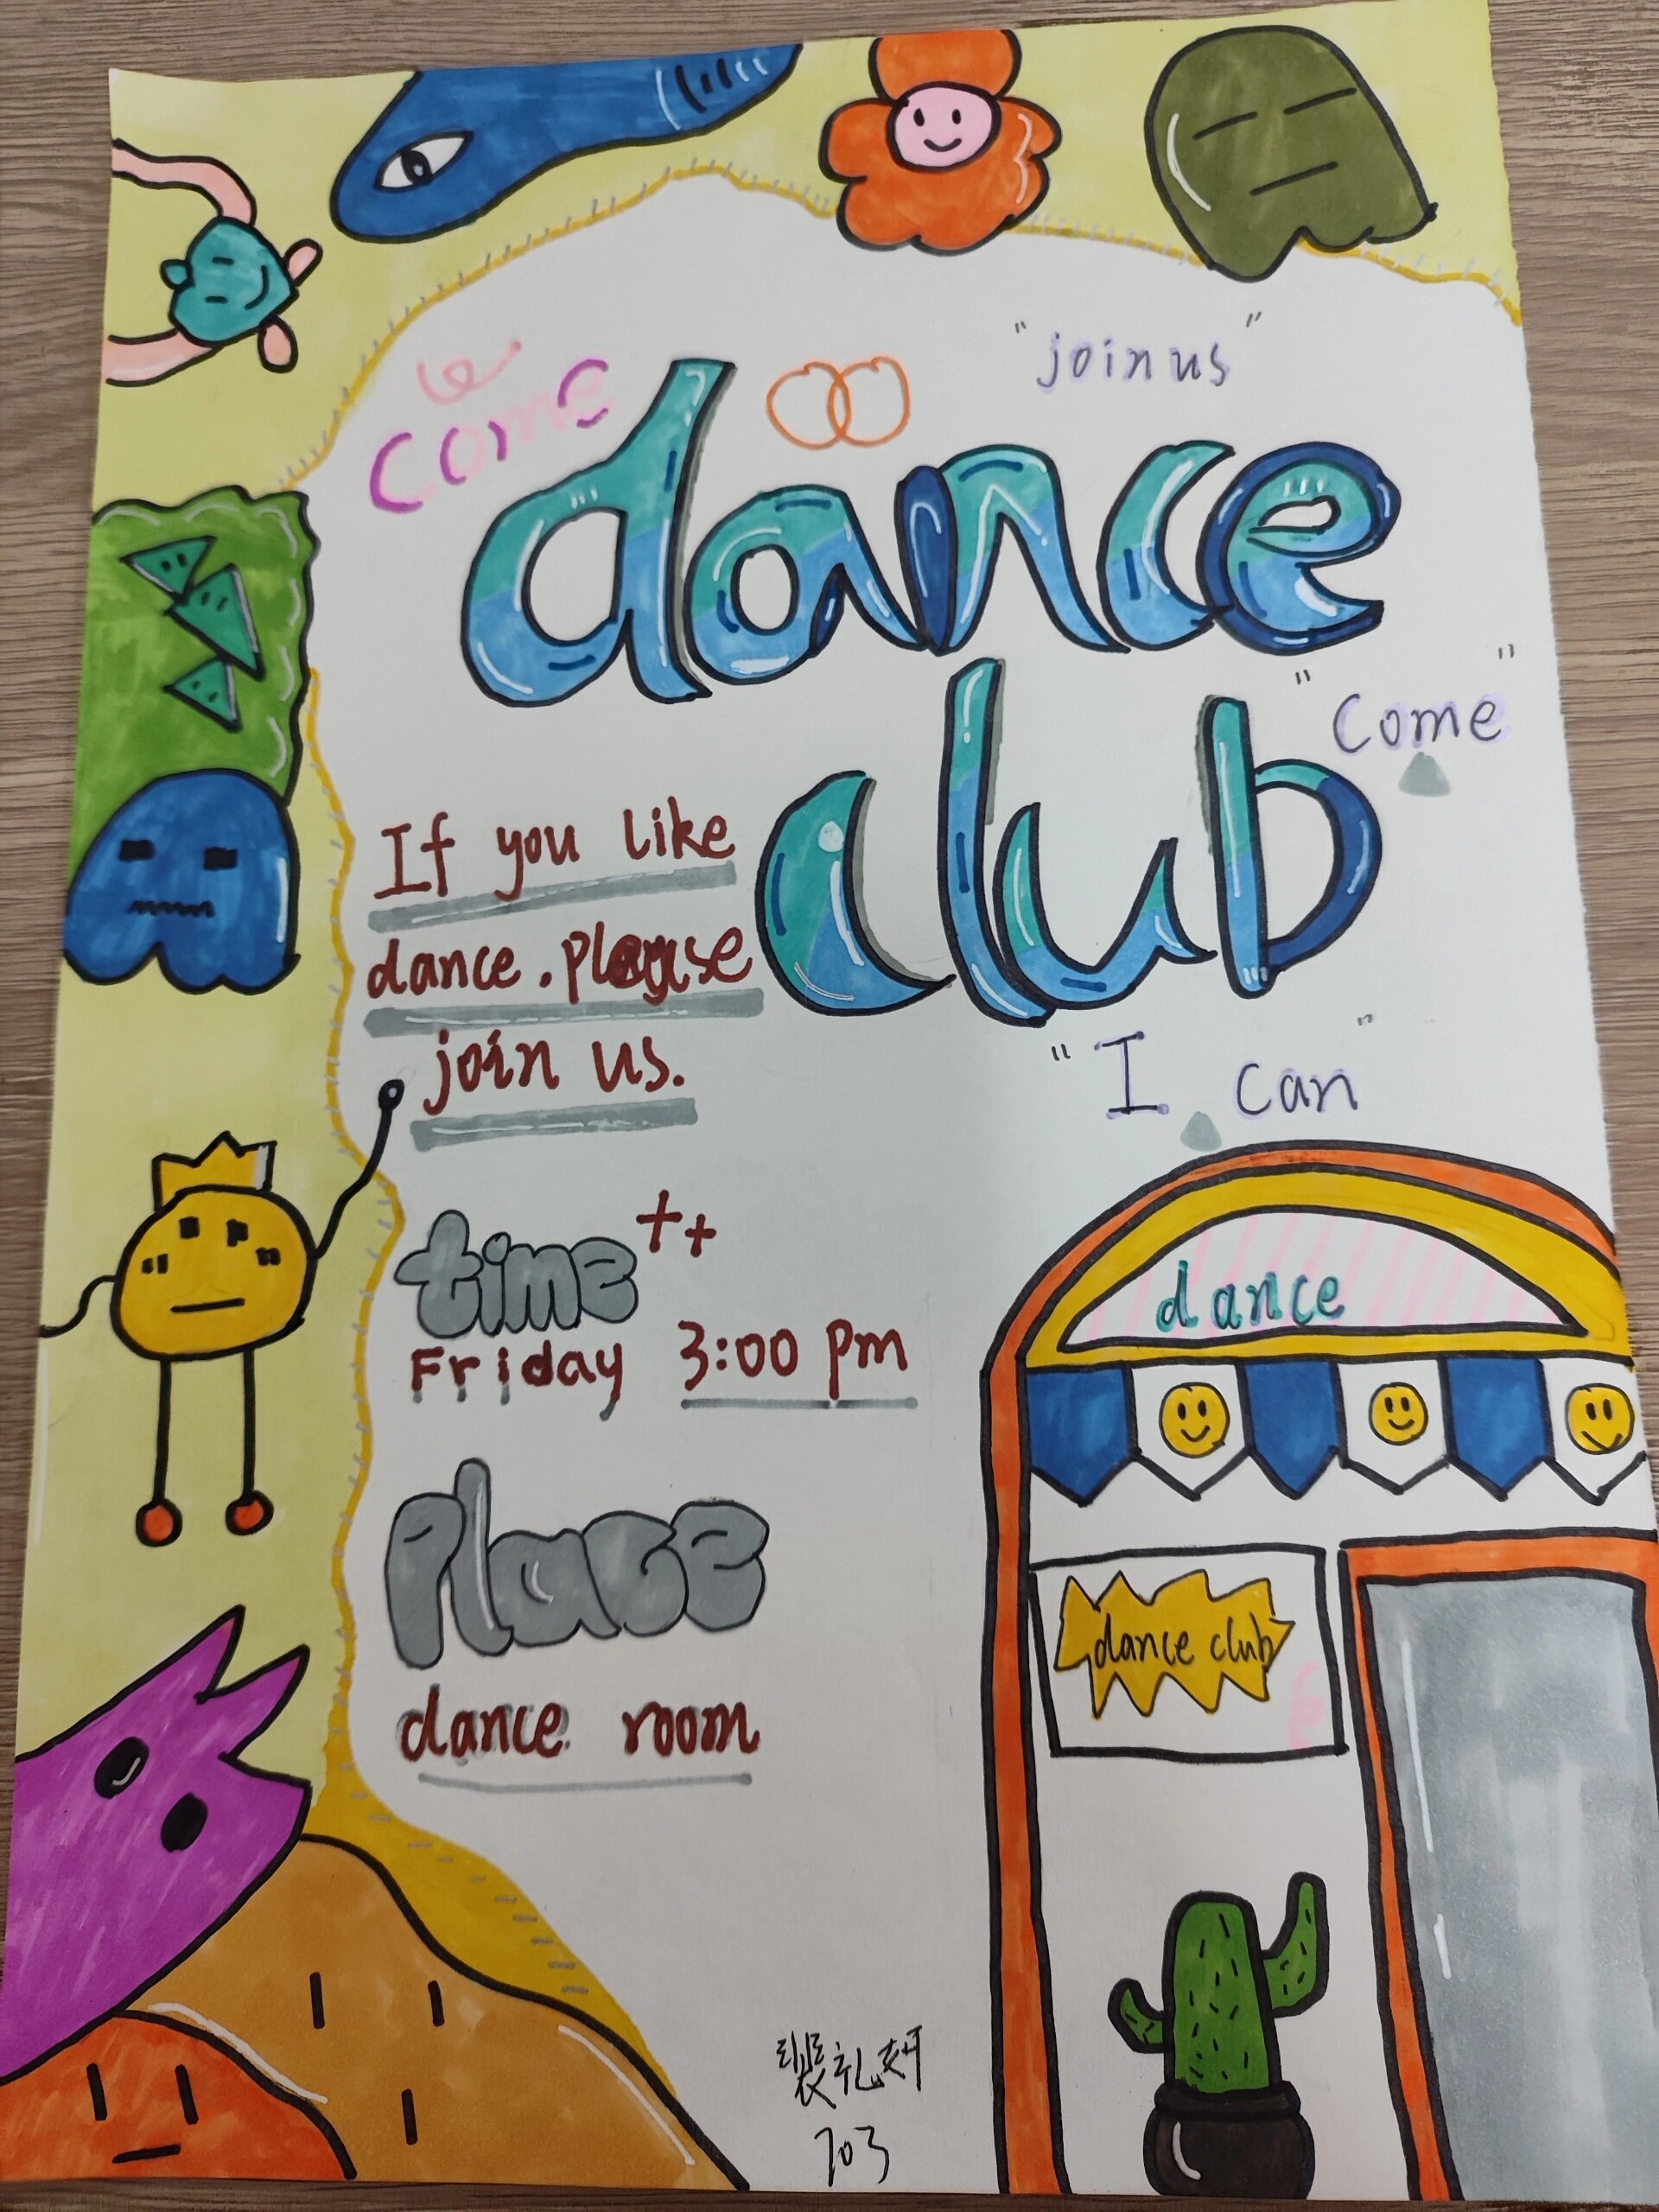 "join us"
come
dance
club
"Come"
If you like
dance.please
join us.
"I can"
time
Friday 3:00 pm
Place
dance room
dance
dance club
裴礼妍
703